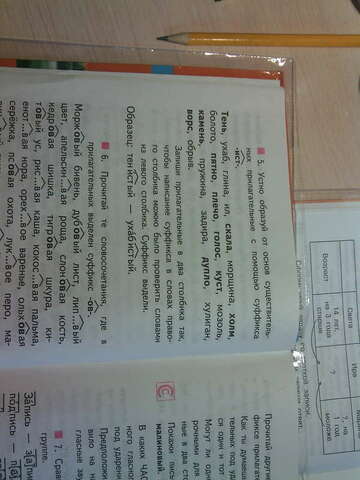 5. Устно образуй от основ существитель-
ных прилагательные с помощью суффикса
-ист-.
Тень, ухаб, глина, ил, скала, морщина, холм,
болото, пятно, плечо, голос, куст, мозоль,
камень, пружина, задира, дупло, хулиган,
ворс, обрыв.
Запиши прилагательные в два столбика так,
чтобы написание суффикса в словах право-
го столбика можно было проверить словами
из левого столбика. Суффикс выдели.
Образец: тенистый — ухабистый.
6. Прочитай те словосочетания, где в
прилагательных выделен суффикс -ов-.
Моржовый бивень, дубовый лист, лип...вый
цвет, апельсин...вая роща, слоновая кость,
кедровая шишка, тигровая шкура, ки-
товый ус, рис...вая каша, кокос...вая пальма,
енот...вая нора, орех...вое варенье, ольховая
серёжка, псовая охота, лук...вое перо, ма-
Прочитай другие
Как ты думаешь
фиксе прилагат
тельных под уда
Могут ли одн
ся одни и тот
рочными для
ные в два ст
Покажи пись
малиновый.
В каких час
ного гласно
под ударени
Предположи
вило на н
главные зву
7. Срав
группе.
Запись — з[а]пи
подпись — п[а]
Света
Ира
Возраст
14 лет,
на 3 года
старше
?
?, на
1 год
моложе